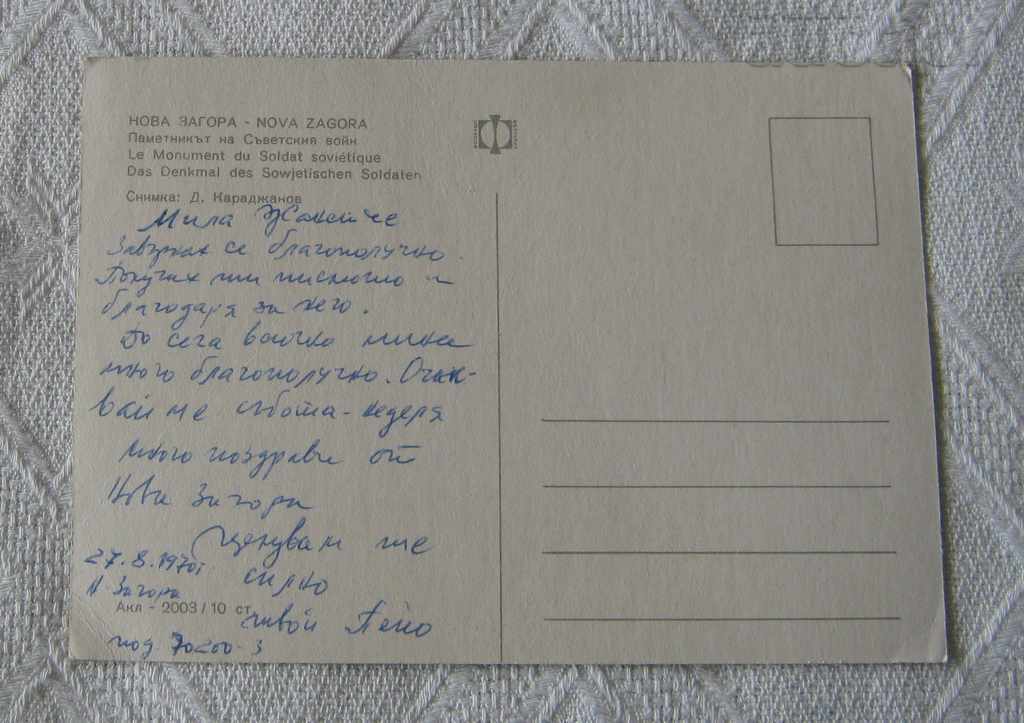 НОВА ЗАГОРА - NOVA ZAGORA
Паметникът на Съветския войн
Le Monument du Soldat soviétique
Das Denkmal des Sowjetischen Soldaten
Снимка: Д. Караджанов
Мила
Завърнах се благополучно.
Получих ти писмото и
благодаря за него.
До сега всичко мина
много благополучно. Очак-
вай ме събота-неделя
Много поздрави от
Нова Загора
Целувам те
силно
27.8.1970г
Н. Загора
твой Пейо
Акл - 2003/10 ст.
под. 70200-З